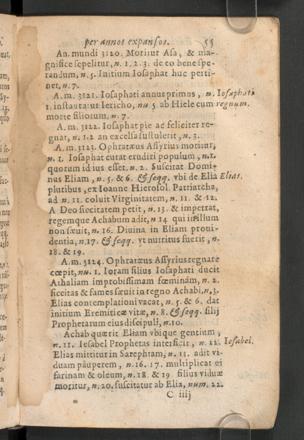 per annos expansos. 55
An. mundi 3120. Moritur Asa, & ma-
gnifice sepelitur, n. 1. 2. 3. de eo bene spe-
randum, n. 5. Initium Iosaphat huc perti-
net, n. 7.
A. m. 3121. Iosaphati annus primus, n. Iosaphati
1. instauratur Iericho, nu. 5. ab Hiele cum regnum.
morte filiorum. n. 7
A. m. 3122. Iosaphat pie ac feliciter re-
gnat, n. 1. 2 an excelsa sustulerit, n. 3.
A. m. 3123. Ophratæus Assyrius moritur,
n. 1. Iosaphat curat erudiri populum, n. 1.
quorum id ius esset, n. 2. Suscitat Domi-
nus Eliam, n. 5. & 6. & seqq. vbi de Elia Elias.
pluribus, ex Ioanne Hierosol. Patriarcha,
ad n. 11. coluit Virginitatem, n. 11. & 12.
A Deo siccitatem petit, n. 13. & impetrat,
regemque Achabum adit, n. 14 qui in illum
non sæuit, n. 16. Diuina in Eliam proui-
dentia, n. 17. & seqq. vt nutritus fuerit, n.
18. & 19.
A. m. 3124. Ophratæus Assyrius regnare
cœpit, nu. 1. Ioram filius Iosaphati ducit
Athaliam improbissimam fœminam, n. 2.
siccitas & fames sæuit in regno Achabi, n. 3.
Elias contemplationi vacat, n. 5. & 6. dat
initium Eremiticæ vitæ, n. 8. & seqq. filij
Prophetarum eius discipuli, n. 10.
Achab quærit Eliam vbique gentium,
n. 11. Iesabel Prophetas interficit, n. 12. Iesabel.
Elias mittitur in Sarephtam, n. 13. adit vi-
duam pauperem, n. 16. 17. multiplicat ei
farinam & oleum, n. 18. & 19 filius viduæ
moritur, n. 20. suscitatur ab Elia, num. 22.
C iiij